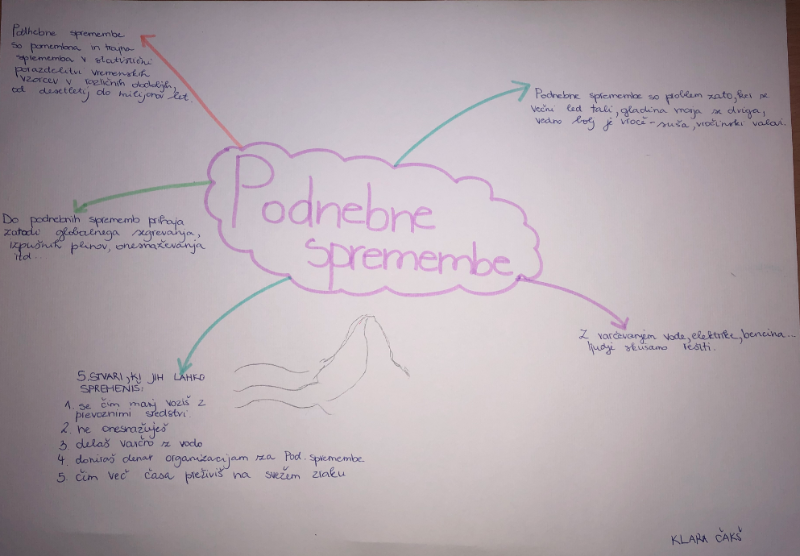 Podnebne spremembe
so pomembna in trajna
sprememba v statistični
porazdelitvi vremenskih
vzorcev v različnih obdobjih,
od desetletij do milijonov let.
Podnebne spremembe so problem zato, ker se
večni led tali, gladina morja se dviga,
vedno bolj je vroče - suša, vročinski valovi.
Podnebne
spremembe
Do podnebnih sprememb prihaja
zaradi globalnega segrevanja,
izpušnih plinov, onesnaževanja
itd...
Z varčevanjem vode, elektrike, bencina...
ljudje skušamo rešiti.
5 STVARI, KI JIH LAHKO
SPREMENIŠ:
1. se čim manj voziš z
prevoznimi sredstvi
2. ne onesnažuješ
3. delaš varčno z vodo
4. doniraš denar organizacijam za Pod. spremembe
5. čim več časa preživiš na svežem zraku
KLARA ČAKŠ